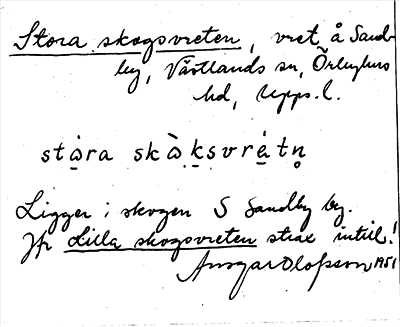 Stora skogsvreten, vret å Sand-
by, Västlands sn, Örbyhus
hd, Upps. l.
stà̤ra skà̤ḵsvré̤tn̥
Ligger i skogen S Sandby by.
Jfr Lilla skogsvreten strax intill!
Ansgar Olofsson 1951